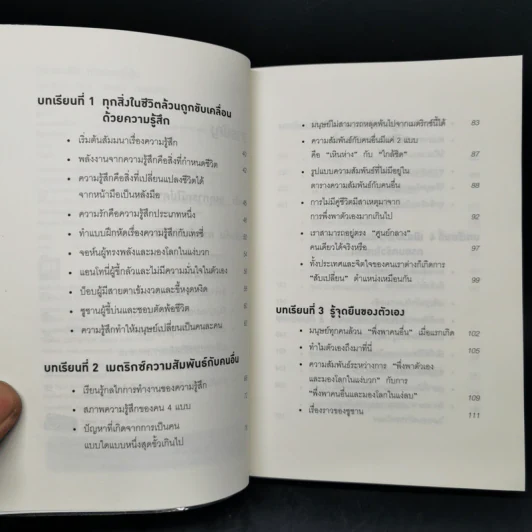 บทเรียนที่ 1 ทุกสิ่งในชีวิตล้วนถูกขับเคลื่อน
ด้วยความรู้สึก
• เริ่มต้นสัมมนาเรื่องความรู้สึก
• พลังงานจากความรู้สึกคือสิ่งที่กำหนดชีวิต
• ความรู้สึกคือสิ่งที่เปลี่ยนแปลงชีวิตได้
จากหน้ามือเป็นหลังมือ
• ความรักคือความรู้สึกประเภทหนึ่ง
• ทำแบบฝึกหัดเรื่องความรู้สึกกับเทรซี่
• จอห์นผู้ทรงพลังและมองโลกในแง่บวก
• แอนโทนีผู้ขี้กลัวและไม่มีความมั่นใจในตัวเอง
• บ๊อบผู้มีสายตาเข้มงวดและขี้หงุดหงิด
• ซูซานผู้ขี้บ่นและชอบตัดพ้อชีวิต
• ความรู้สึกทำให้มนุษย์เปลี่ยนเป็นคนละคน
บทเรียนที่ 2 เมตริกซ์ความสัมพันธ์กับคนอื่น
• เรียนรู้กลไกการทำงานของความรู้สึก
• สภาพความรู้สึกของคน 4 แบบ
• ปัญหาที่เกิดจากการเป็นคน
แบบใดแบบหนึ่งสุดขั้วเกินไป
• มนุษย์ไม่สามารถหลุดพ้นไปจากเมตริกซ์นี้ได้ 83
• ความสัมพันธ์กับคนอื่นมีแค่ 2 แบบ
คือ "เหินห่าง" กับ "ใกล้ชิด" 87
• รูปแบบความสัมพันธ์ที่ไม่มีอยู่ใน
ตารางความสัมพันธ์กับคนอื่น 88
• การไม่มีคู่ชีวิตมีสาเหตุมาจาก
การพึ่งพาตัวเองมากเกินไป 92
• เราสามารถอยู่ตรง "ศูนย์กลาง"
คนเดียวได้จริงหรือ 97
• ทั้งประเทศและจิตใจของคนเราต่างก็เกิดการ
"สับเปลี่ยน" ตำแหน่งเหมือนกัน 99
บทเรียนที่ 3 รู้จุดยืนของตัวเอง
• มนุษย์ทุกคนล้วน "พึ่งพาคนอื่น" เมื่อแรกเกิด 102
• ทำไมตัวเองถึงมาที่นี่ 105
• ความสัมพันธ์ระหว่างการ "พึ่งพาตัวเอง
และมองโลกในแง่บวก" กับการ
"พึ่งพาคนอื่นและมองโลกในแง่ลบ" 109
• เรื่องราวของซูซาน 111